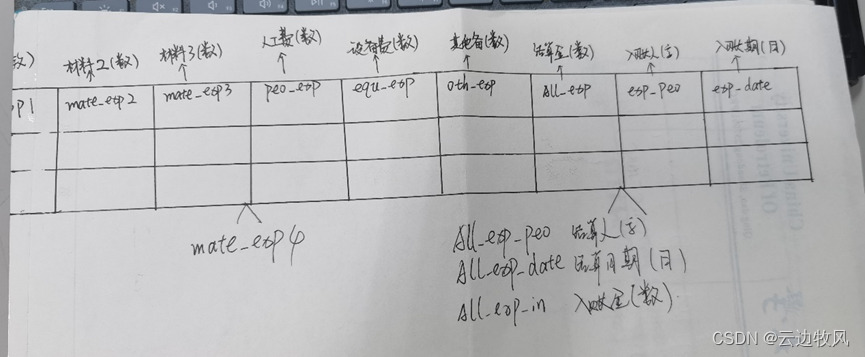 数) 材料2(数) 材料3(数) 人工费(数) 设备费(数) 其他备(数) 结算金(数) 入账人(字) 入账期(日)
p1 mate_exp2 mate_exp3 peo_exp equ_exp oth_exp All_exp exp_peo exp_date
mate_exp4
All_exp_peo 结算人(字)
All_exp_date 结算日期(日)
All_exp_in 入账金(数)
CSDN @云边牧风